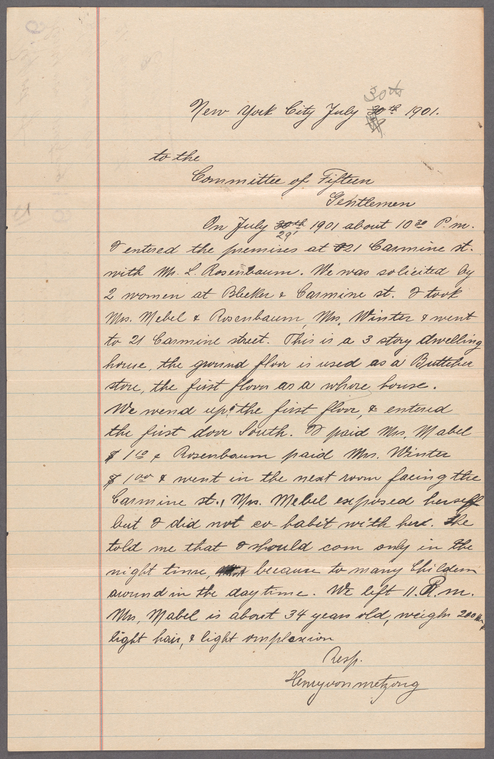 New York City July 30th 1901.
to the
Committee of Fifteen
Gentlemen
On July 30th 29' 1901 about 10 30 P.m.
I entered the premises at 21 Carmine st.
with Mr. S. Rosenbaum. We was solicited by
2 women at Bleeker & Carmine st. I took
Mrs. Mebel & Rosenbaum, Mrs. Winter & went
to 21 Carmine street. This is a 3 story dwelling
house, the ground floor is used as a Buttcher
store, the first floor as a whore house.
We wend up the first floor, & entered
the first dove South. I paid Mrs. Mabel
$ 1 00 & Rosenbaum paid Mrs. Winter
$ 1 00 & went in the next room facing the
Carmine st., Mrs. Mebel exposed herself
but I did not co habit with her. She
told me that I should com only in the
night time, because to many Children
around in the daytime. We left 11. P.m.
Mrs. Mabel is about 34 years old, weighs 200
light hair, & light complexion
Resp.